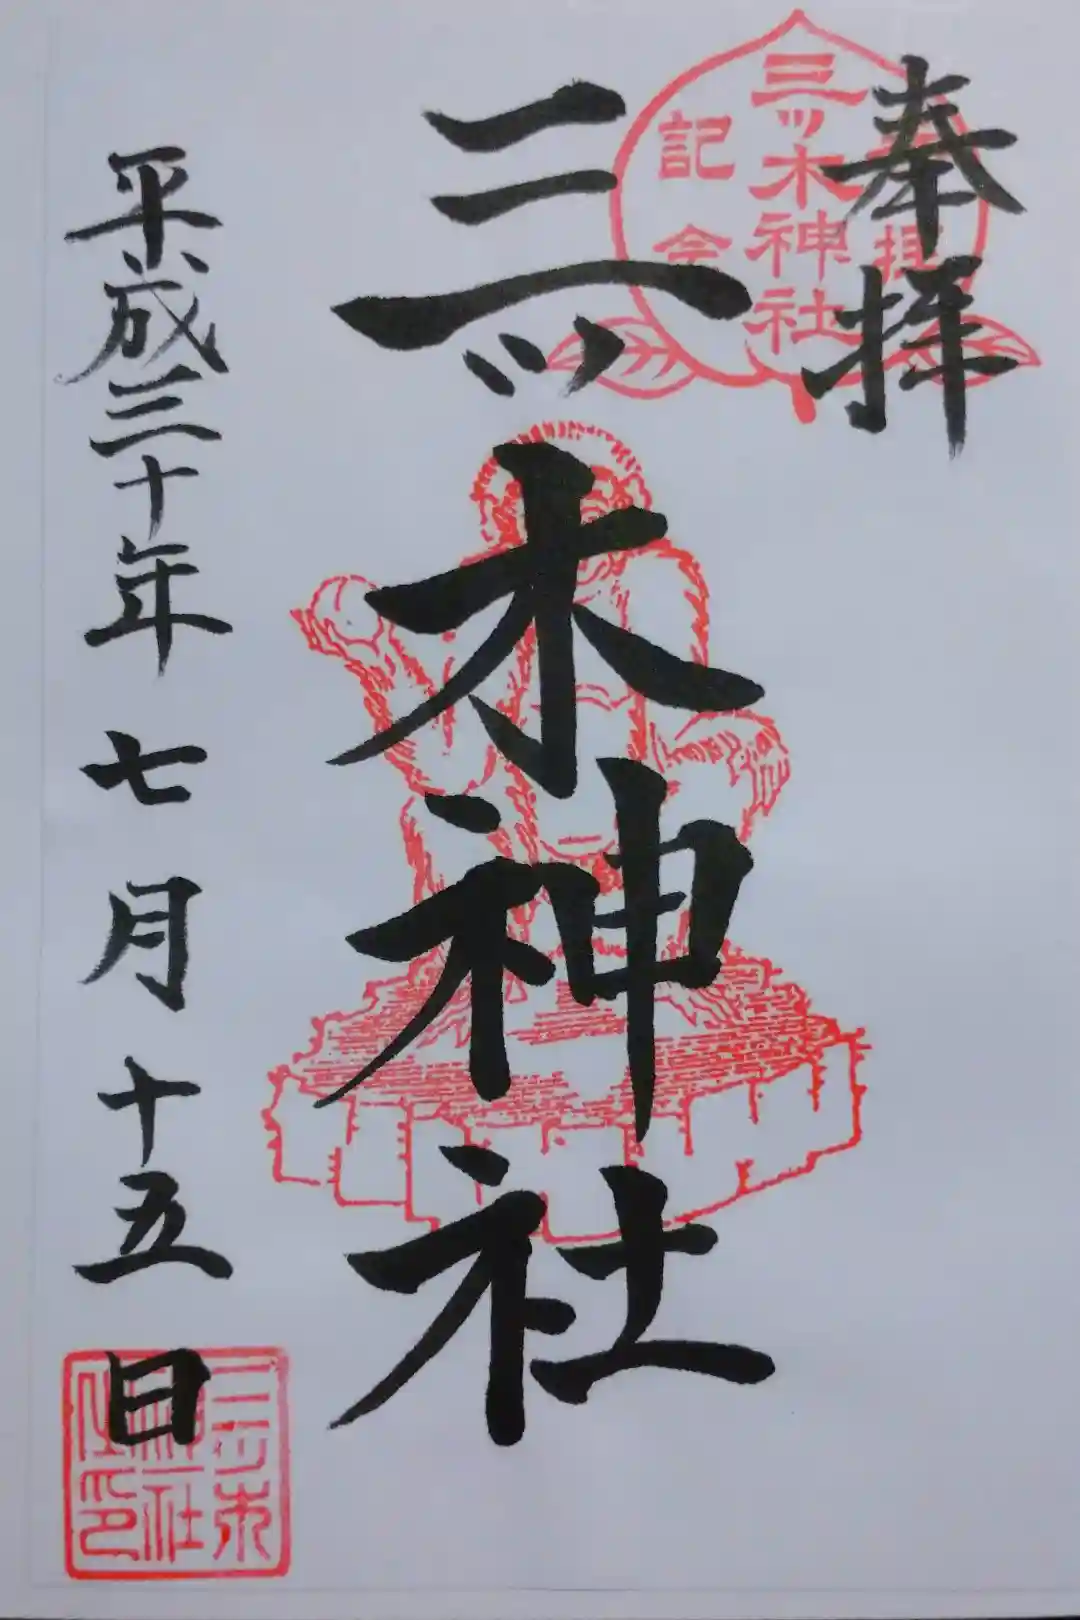 奉拝
三ッ木神社
記念
三ッ木神社
平成三十年七月十五日
三ツ木
神社
印